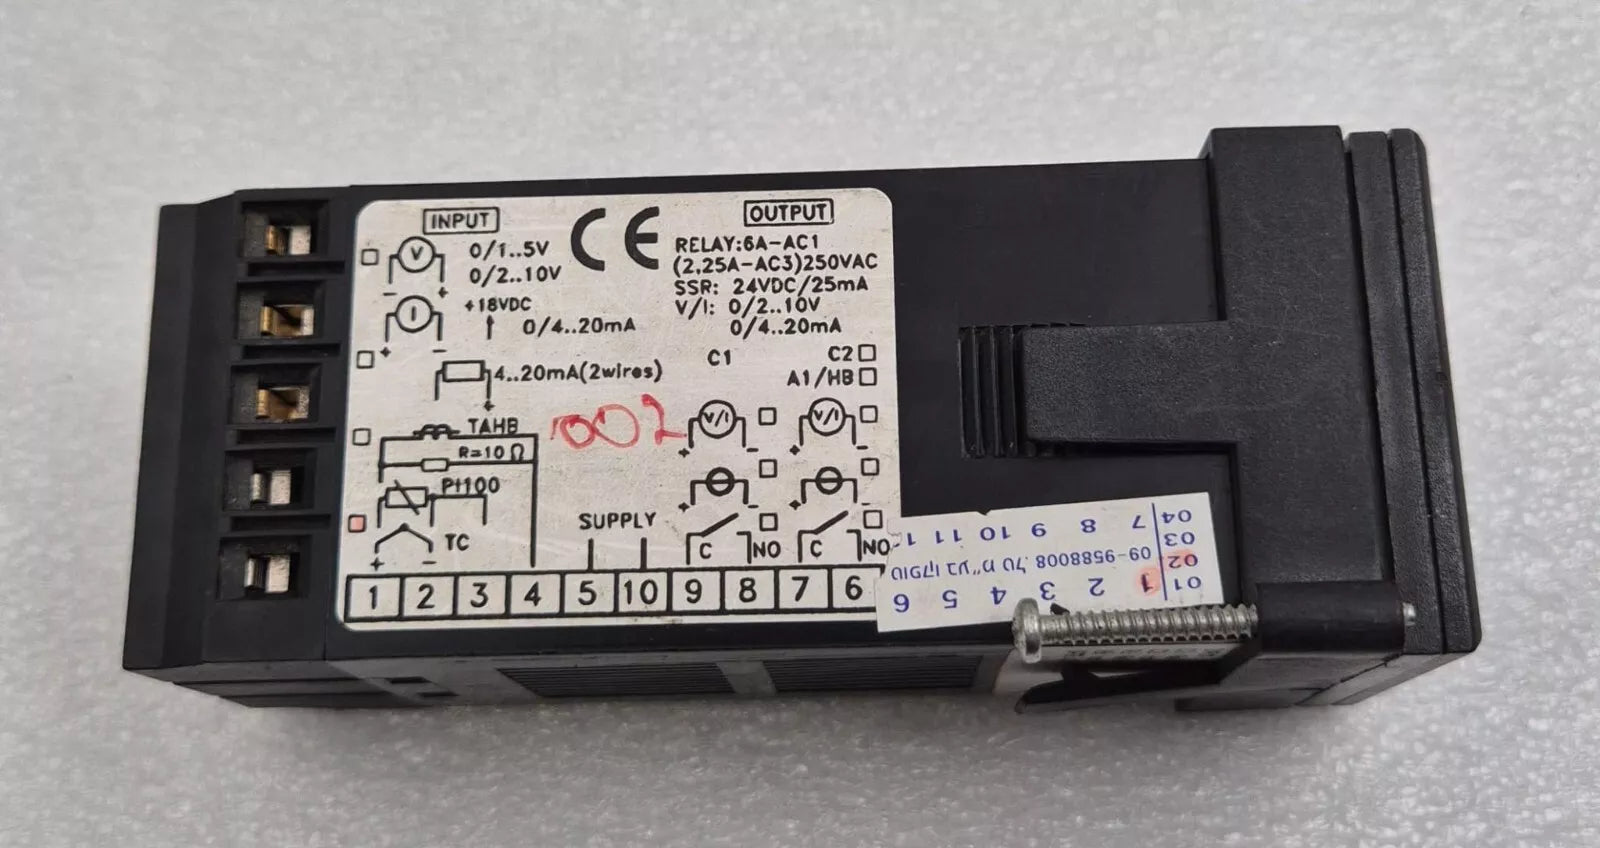 INPUT
OUTPUT
V
0/1..5V
0/2..10V
CE
RELAY:6A-AC1
(2,25A-AC3)250VAC
SSR: 24VDC/25mA
V/I: 0/2..10V
0/4..20mA
- +
I
+18VDC
0/4..20mA
+ -
4..20mA(2wires)
+
C1
C2
A1/HB
002
TAHB
R=10Ω
Pt100
TC
+ -
V/I
V/I
+ -
+ -
+ -
+ -
SUPPLY
C NO
C NO
1 2 3 4 5 10 9 8 7 6
01 1 2 3 4 5 6
02
03
09-9588008
04 7 8 9 10 11